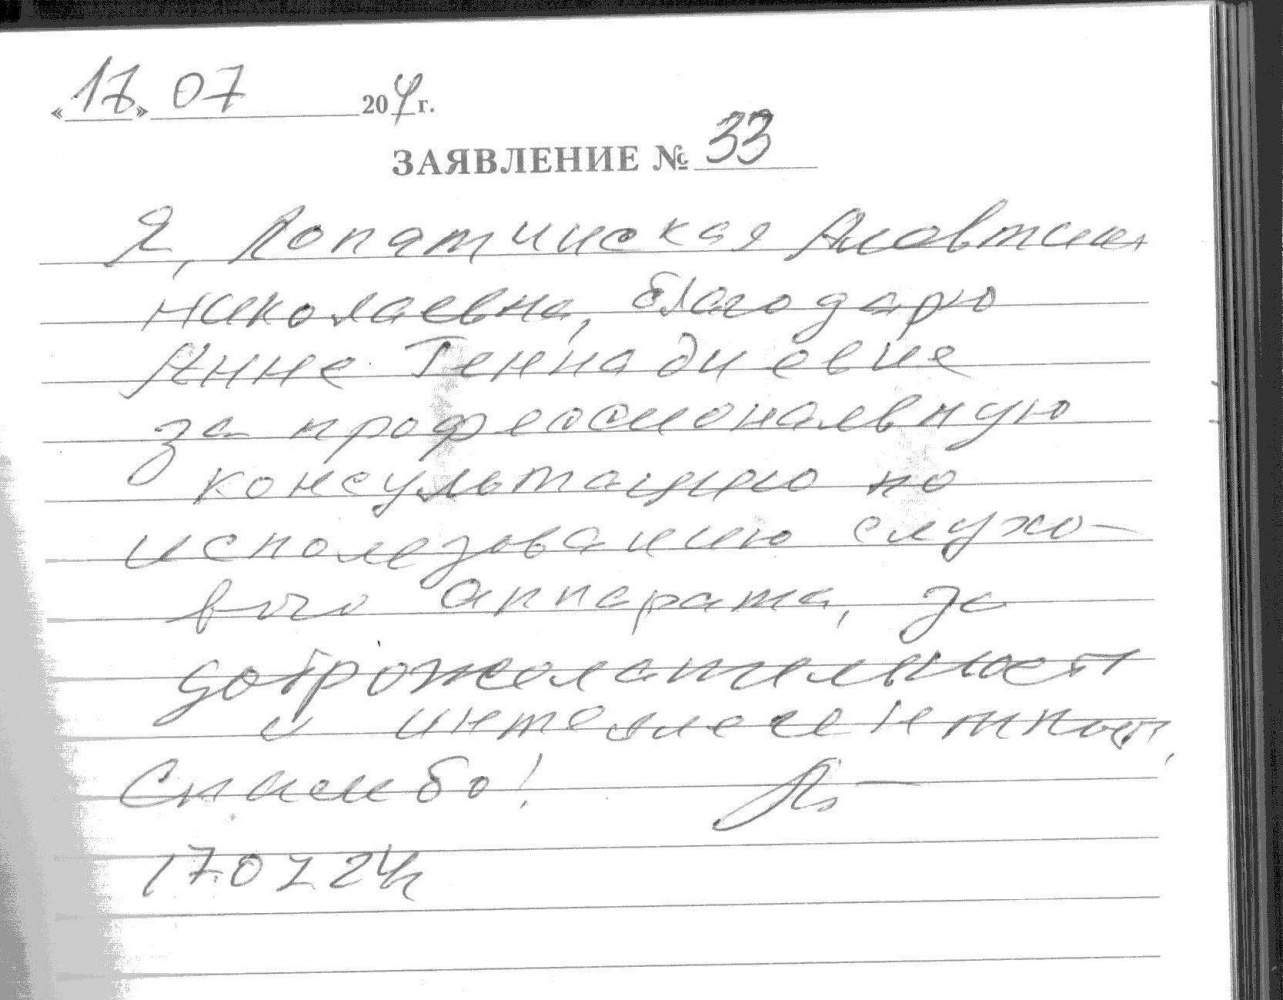 «17» 07 204г.
ЗАЯВЛЕНИЕ № 33
Я, Лопатинская Алевтина
Николаевна, благодарю
Анну Геннадиевну
за профессиональную
консультацию по
использованию слухо-
вого аппарата, за
доброжелательность
и интеллегентность,
Спасибо!
17.07.24г